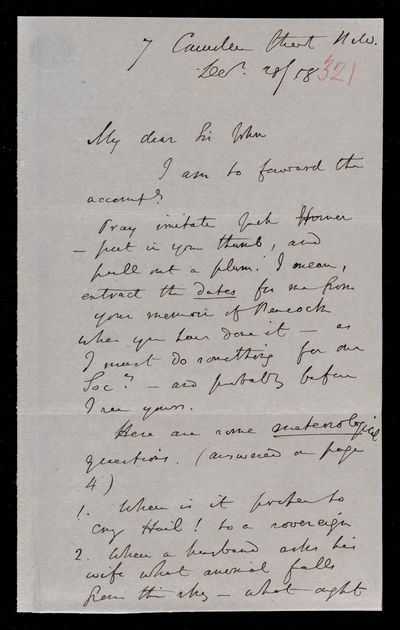 7 Camden Street N.W.
Decr. 28/58 321
My dear Sir John
I am to forward the
accompt?
Pray imitate Jack Horner
– put in your thumb, and
pull out a plum. I mean,
extract the dates for me from
your memoir of Peacock
when you have done it – as
I must do something for our
Socy – and probably before
I see yours.
Here are some meteorological
questions. (answered on page
4)
1. When is it proper to
cry Hail! to a sovereign
2. When a husband asks his
wife what animal falls
from the sky – what ought